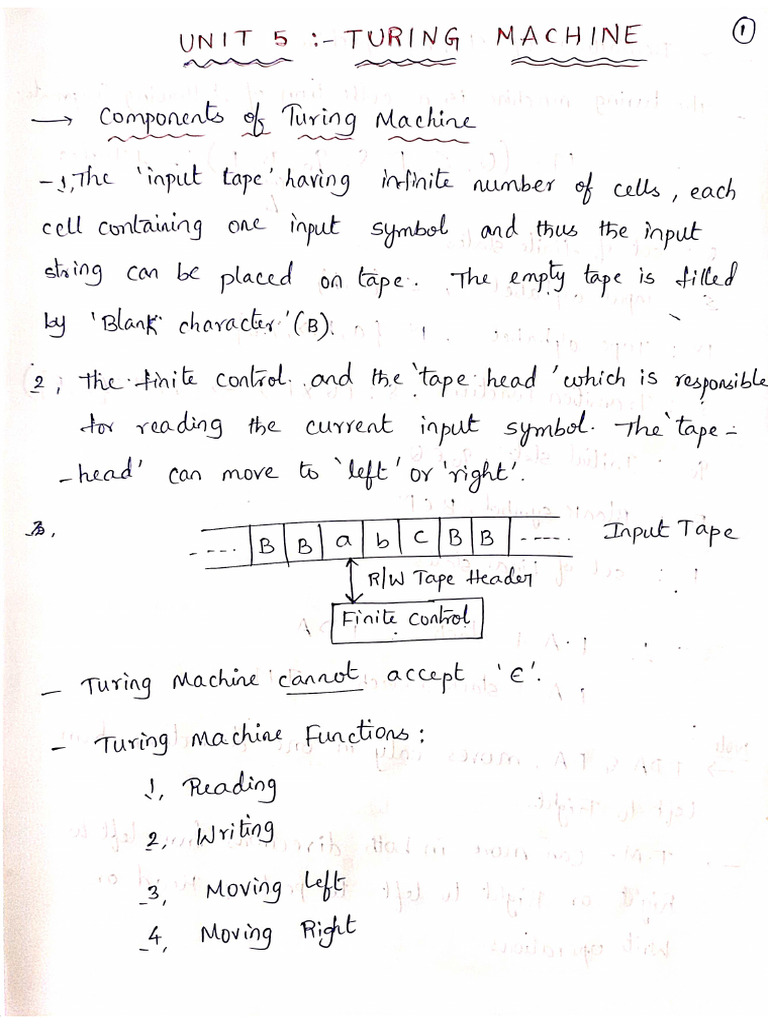 UNIT 5 :- TURING MACHINE
1
→ Components of Turing Machine
- 1, The 'input tape' having infinite number of cells, each
cell containing one input symbol and thus the input
string can be placed on tape. The empty tape is filled
by 'Blank character' (B).
2, The finite control and the 'tape head' which is responsible
for reading the current input symbol. The 'tape -
- head' can move to 'left' or 'right'.
3,
---- B B a b C B B ----- Input Tape
R/W Tape Header
Finite Control
- Turing Machine cannot accept 'ϵ'.
- Turing Machine Functions:
1, Reading
2, Writing
3, Moving Left
4, Moving Right